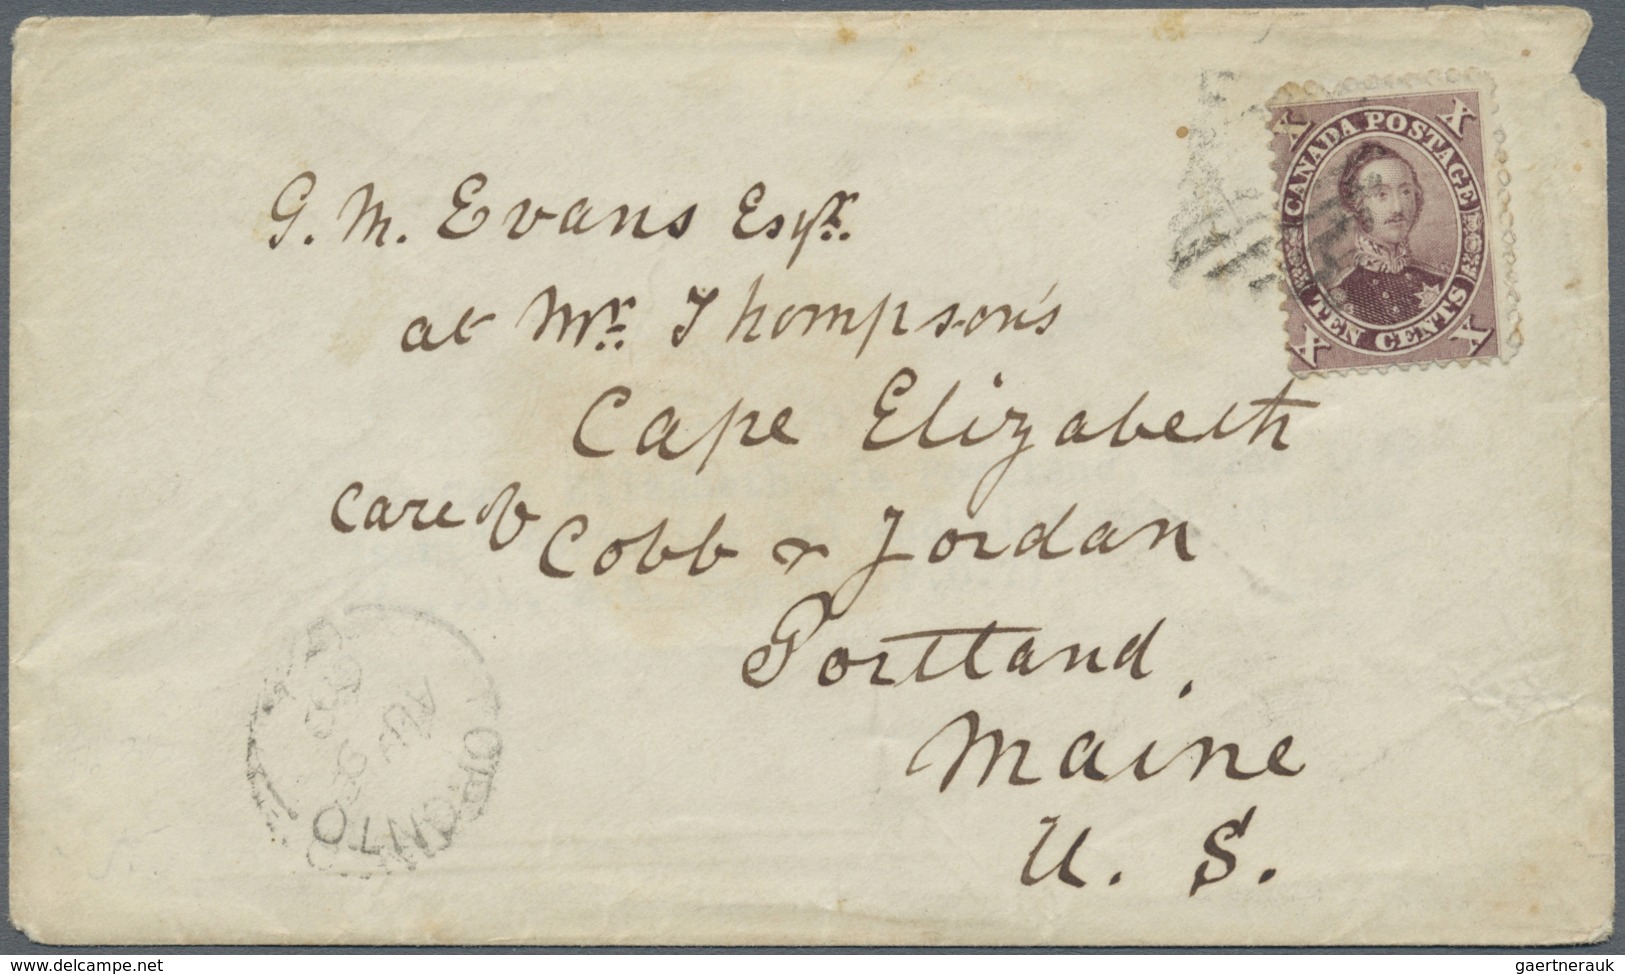 CANADA POSTAGE
X X
TEN CENTS
X X
G. M. Evans Esqr.
at Mr. Thompson's
Cape Elizabeth
Care of Cobb & Jordan
Portland,
Maine
U. S.
TORONTO
AU
www.delcampe.net
gaertnerauk